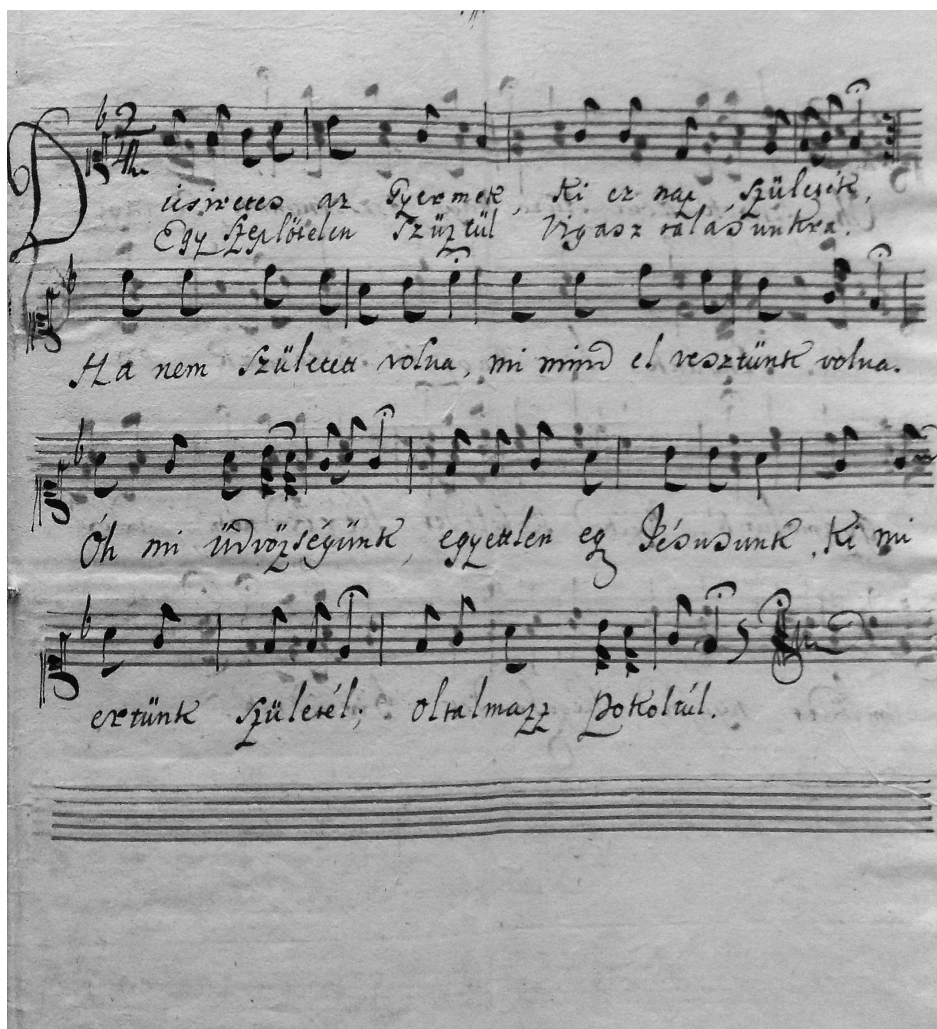 Dücsiretes az Gyermek, Ki ez nap Születék,
Egy Szeplötelen Szűztül Vigasztalásunkra.
Ha nem Születet volna, mi mind el vesztünk volna.
Óh mi üdvözségünk, egyetlen egy Jésusunk, Ki mi
ertünk Születél, Oltalmazz Pokoltúl.